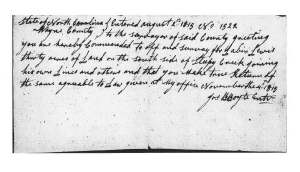 State of North Carolina { Entered august 2d 1818 No 1322
Wayne County } To the surveyor of said County greeting
you are hereby Commanded to lay off and survey for Calvin Lewis
thirty acres of Land on the south side of Sleepy Creek joining
his own Lines and others and that you Make true Return of
the same agreeable to Law given at My office November the 4th 1819
Jos Boyte